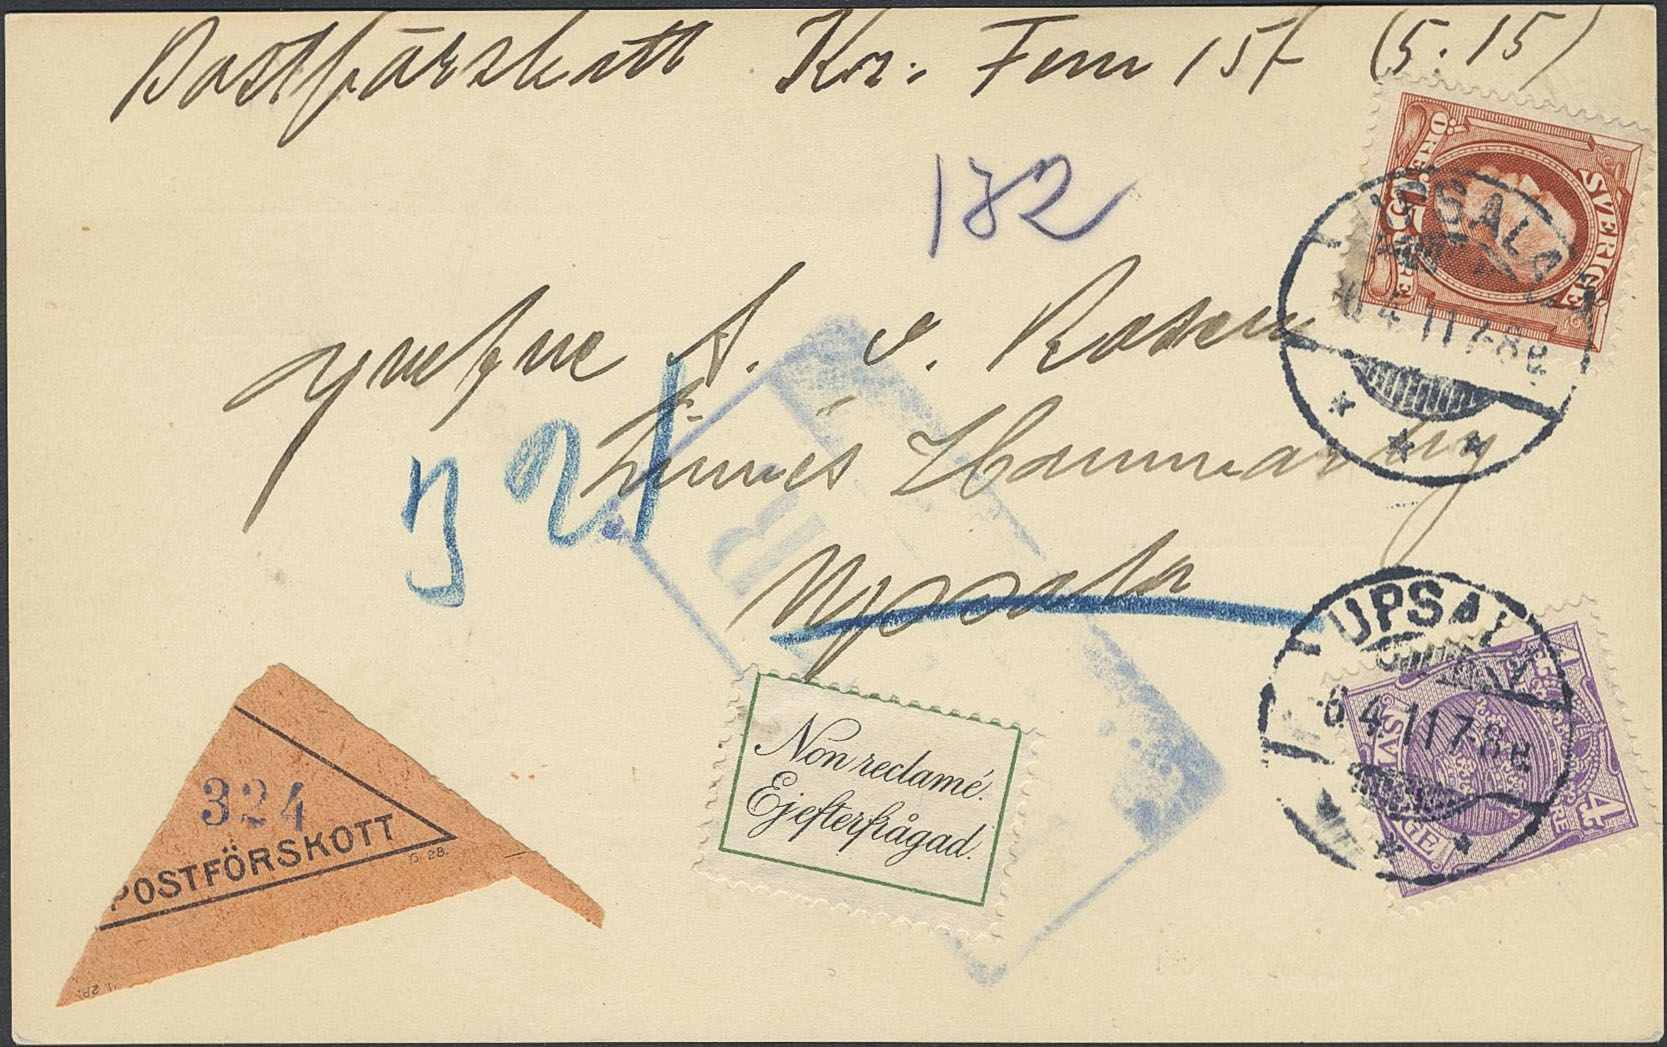 Postförskott Kr. Fem 15/ (5.15)
172
A. v. Rosen
Linnés Hammarby
Upsala
321
SVERIGE
ÖRE
UPSALA
6 4 11 7-8 e
UPSALA
6 4 11 7-8 e
4
ÖRE
324
POSTFÖRSKOTT
G. 28.
Non reclamé.
Ej efterfrågad.
R